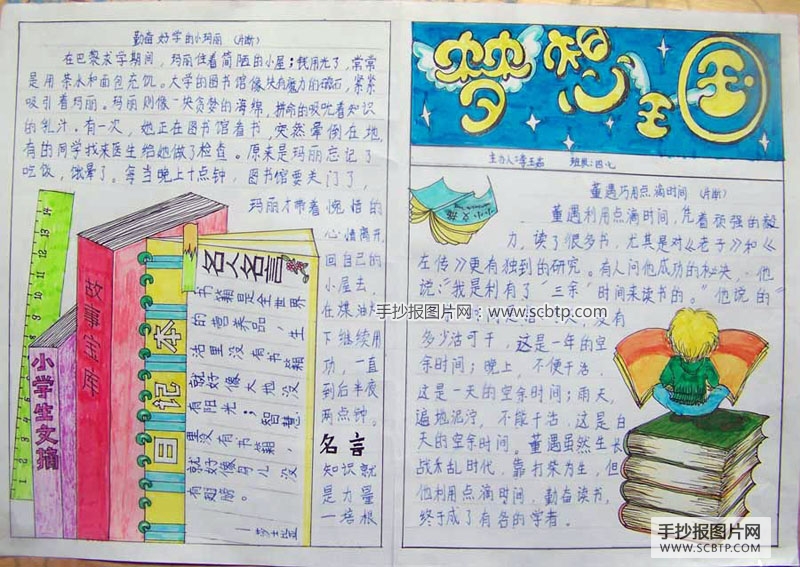 勤奋好学的小玛丽 (片断)
在巴黎求学期间，玛丽住着简陋的小屋；钱用光了，常常
是用茶水和面包充饥。大学的图书馆像块有魔力的磁石，紧紧
吸引着玛丽。玛丽则像一块贪婪的海绵，拼命的吸吮着知识
的乳汁。有一次，她正在图书馆看书，突然晕倒在地，
有的同学找来医生给她做了检查。原来是玛丽忘记了
吃饭，饿晕了。每当晚上十点钟，图书馆要关门了，
玛丽才带着惋惜的
心情离开，
回自己的
小屋去，
在煤油灯
下继续用
功，一直
到后半夜
两点钟。
名言
知识就
是力量
—培根
故事宝库
小学生文摘
日记本
名人名言
书籍是全世界
的营养品，生
活里没有书籍
就好像大地没
有阳光；智慧
里没有书籍，
就好像鸟儿没
有翅膀。
—莎士比亚
梦想王国
主办人:李玉 班级:四·七
小小文摘
董遇巧用点滴时间 (片断)
董遇利用点滴时间，凭着顽强的毅
力，读了很多书，尤其是对《老子》和《
左传》更有独到的研究。有人问他成功的秘诀，他
说:“我是利有了“三余”时间来读书的。”他说的“
没有
多少活可干，这是一年的空
余时间；晚上，不便干活，
这是一天的空余时间；雨天，
遍地泥泞，不能干活，这是白
天的空余时间。董遇虽然生长
战乱时代，靠打柴为生，但
他利用点滴时间，勤奋读书，
终于成了有名的学者。
手抄报图片网:www.scbtp.com
手抄报图片网
WWW.SCBTP.COM